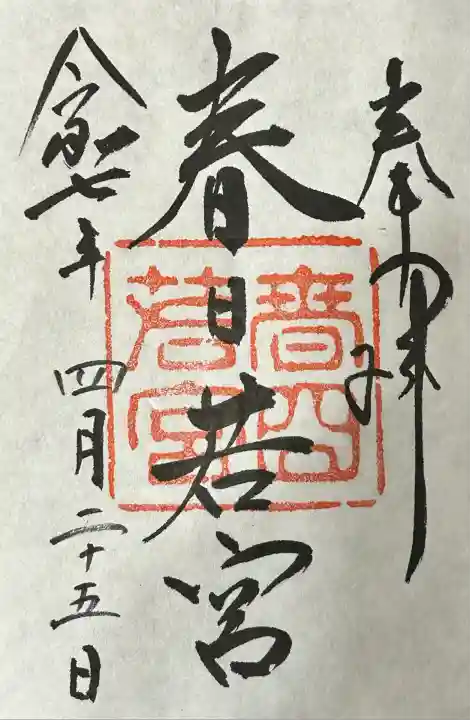 奉拝
春日若宮
春日
若宮
令和七年 四月二十五日